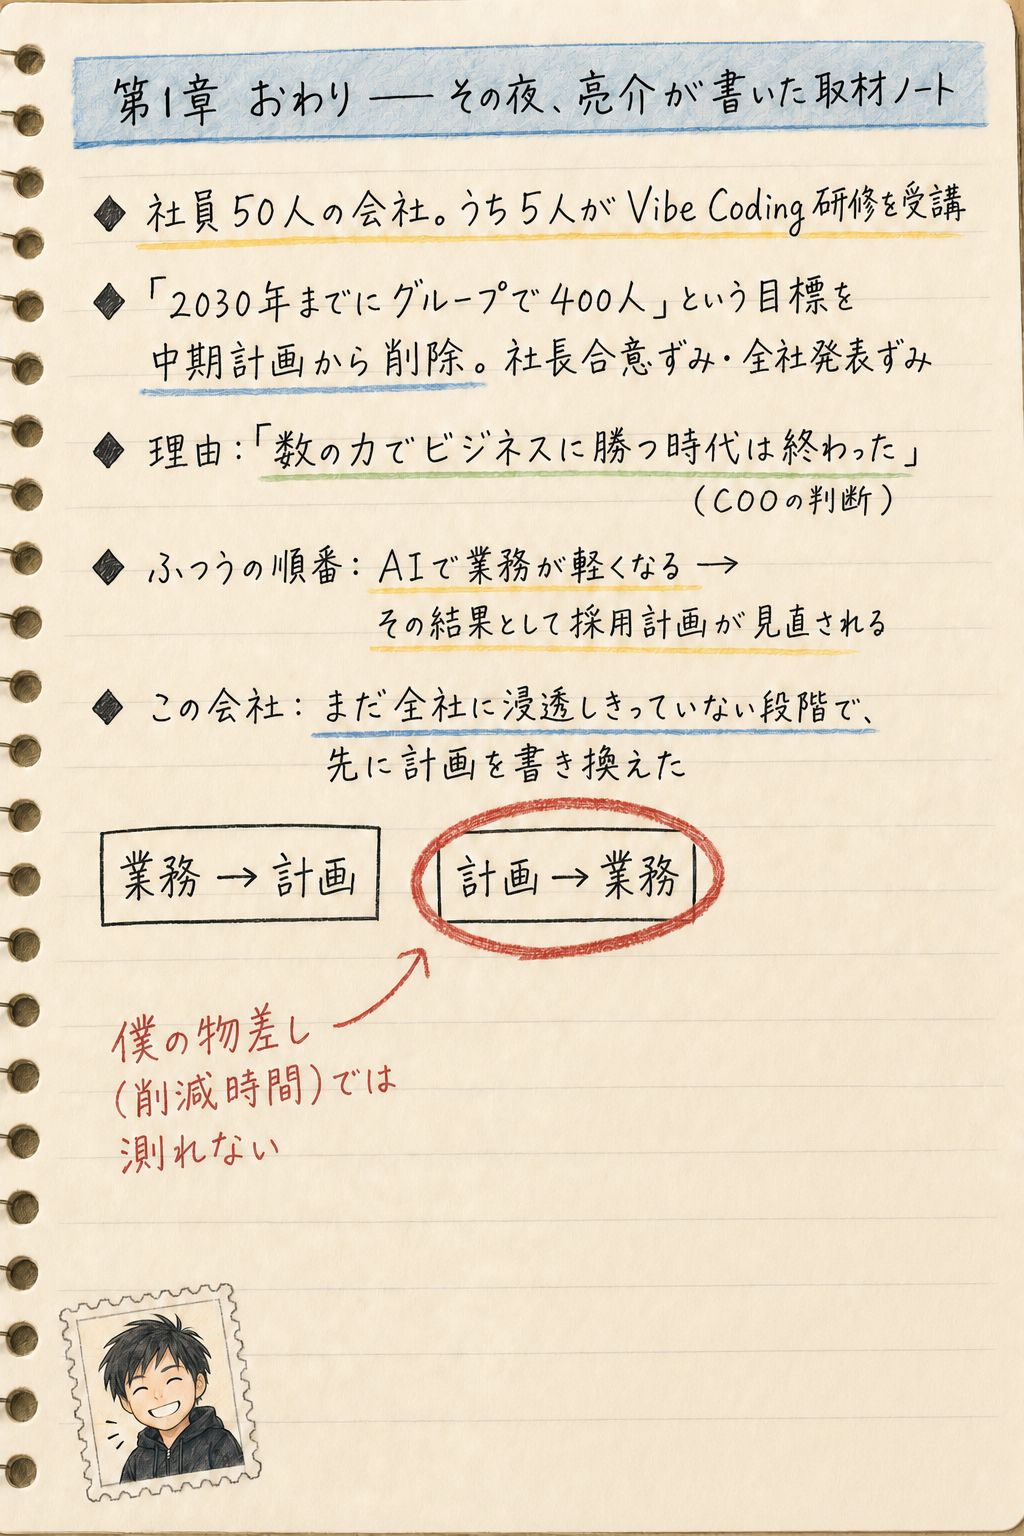 第1章 おわり ── その夜、亮介が書いた取材ノート
◆ 社員50人の会社。うち5人がVibe Coding研修を受講
◆ 「2030年までにグループで400人」という目標を
中期計画から削除。社長合意ずみ・全社発表ずみ
◆ 理由:「数の力でビジネスに勝つ時代は終わった」
(COOの判断)
◆ ふつうの順番: AIで業務が軽くなる →
その結果として採用計画が見直される
◆ この会社: まだ全社に浸透しきっていない段階で、
先に計画を書き換えた
業務 → 計画
計画 → 業務
僕の物差し
(削減時間)では
測れない